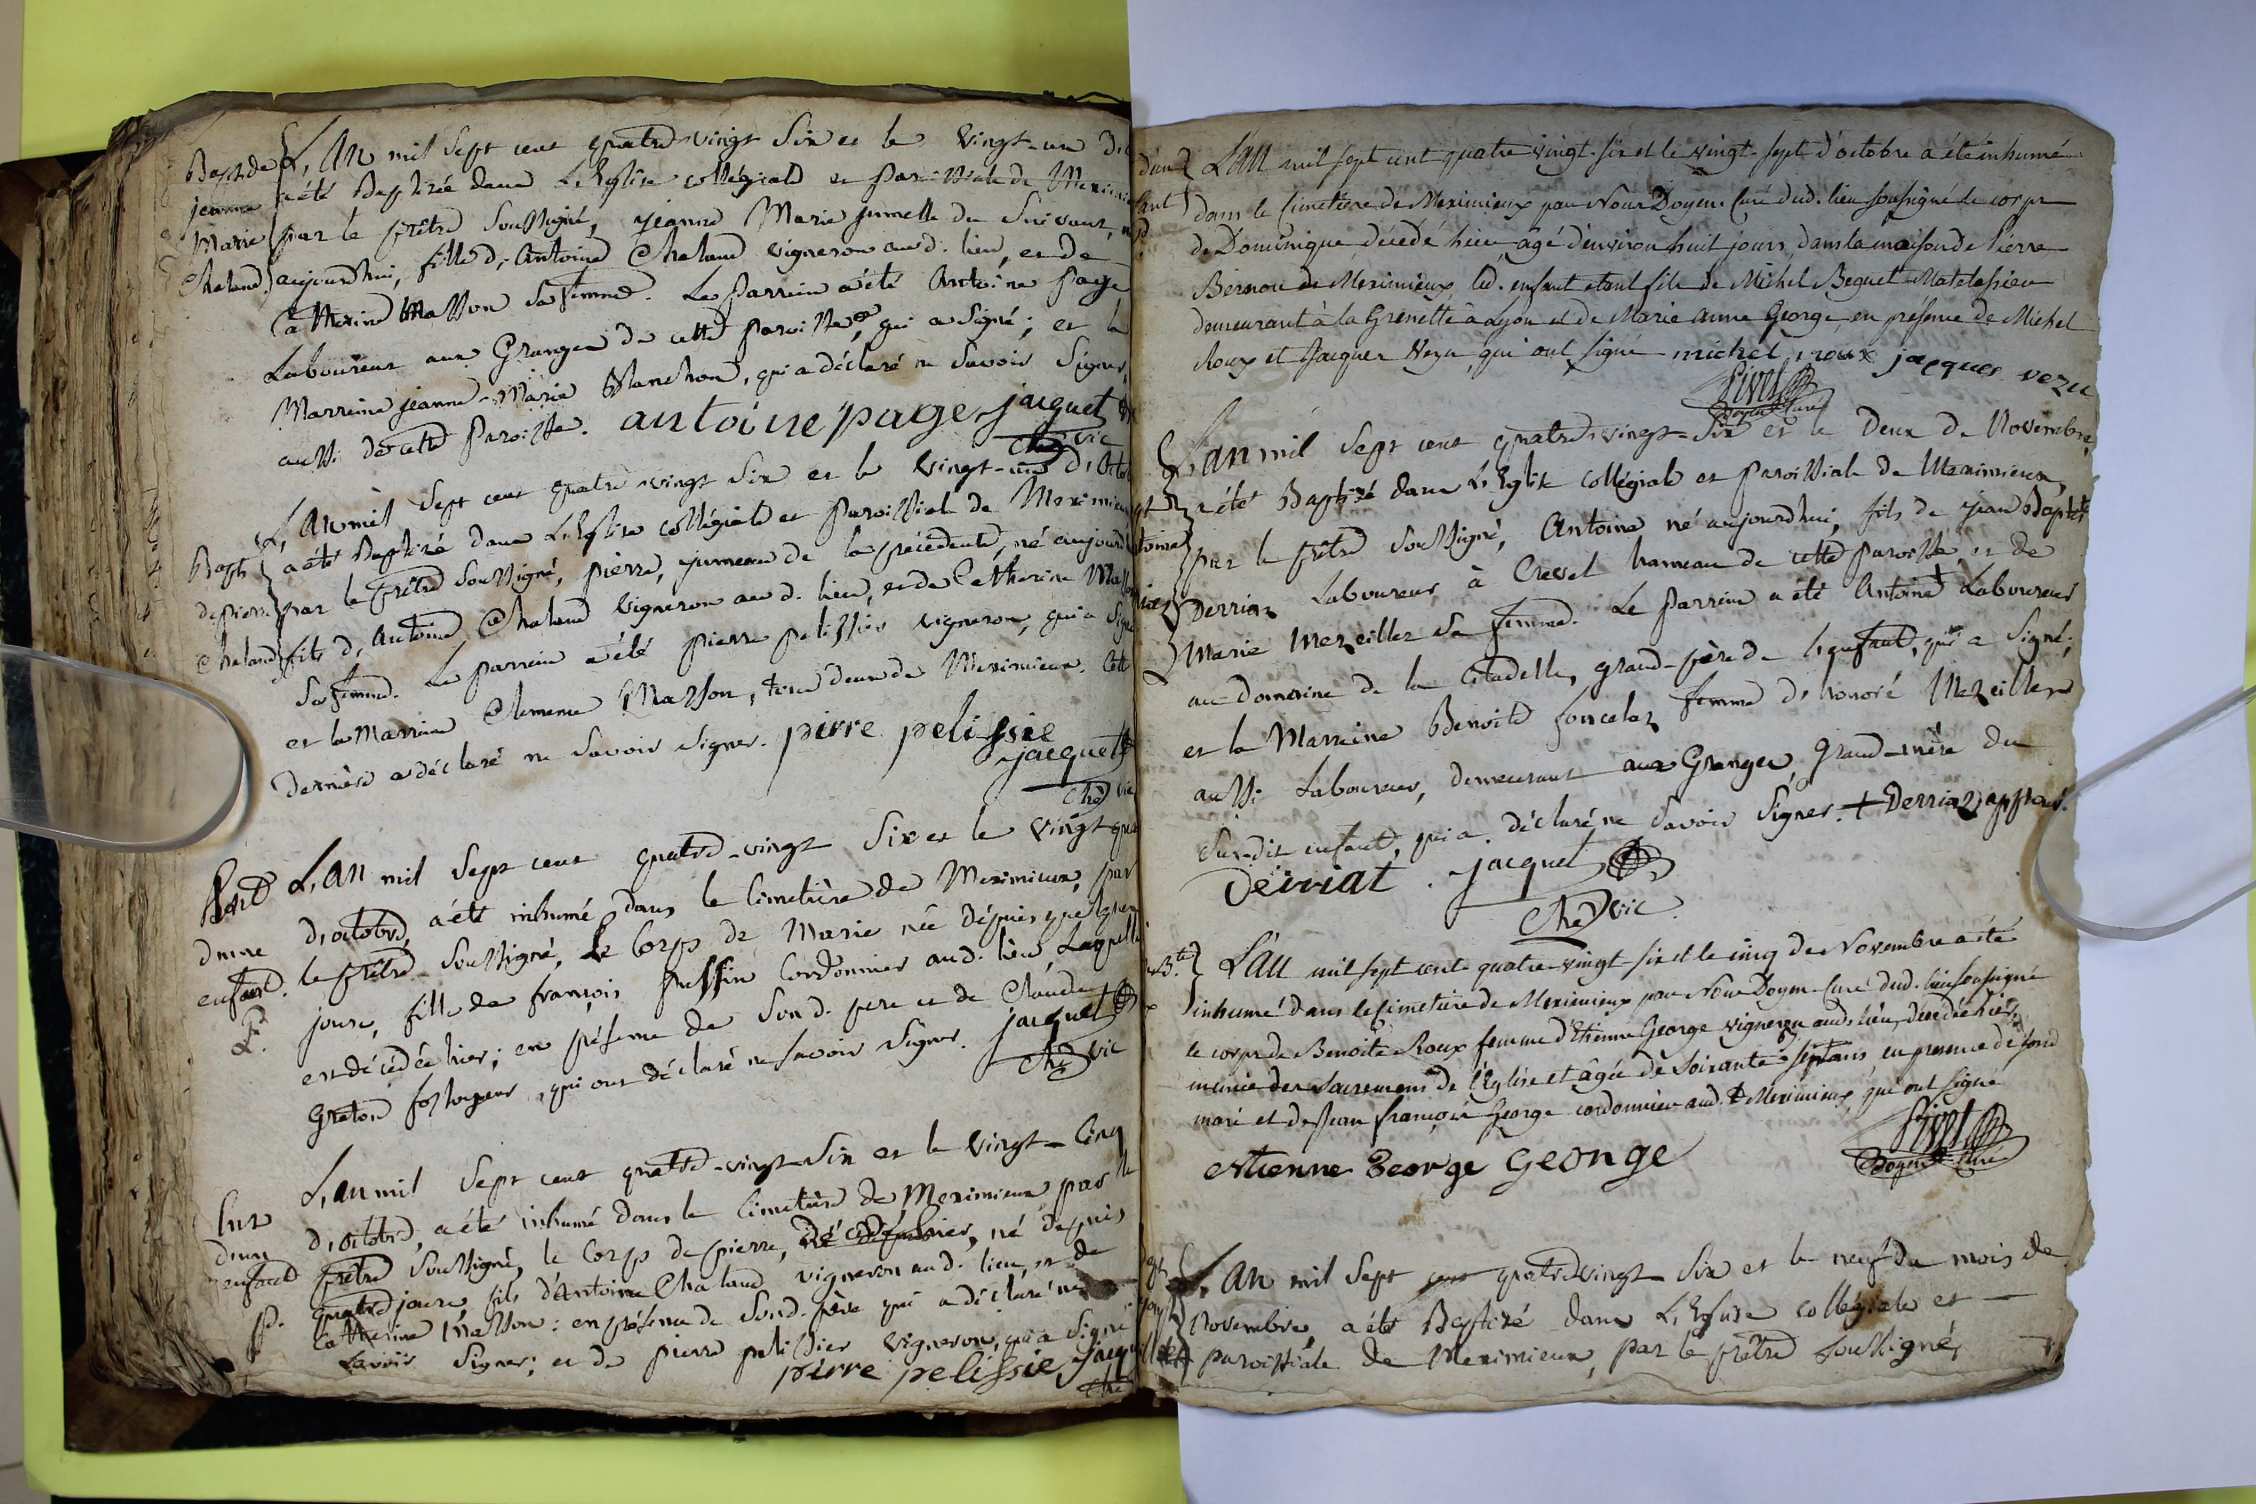 Bapt. de L'An mil sept cent quatre vingt six et le vingt-un d'o
jeanne a été Baptisée dans L'Eglise collégiale et Paroissiale de Meximieu
Marie par le prêtre soussigné, jeanne Marie jumelle du suivant, n
Chaland aujourdhui, fille d'Antoine Chaland vigneron aud. lieu, et de
Catherine Masson sa femme. Le Parrein a été Antoine Page
Laboureur aux Granges de cette paroisse, qui a signé; et la
Marreine jeanne-Marie Blanchon, qui a déclaré ne savoir signer,
aussi de cette Paroisse. antoine page jacquet
Che vic
L'An mil sept cent quatre vingt six et le vingt-un d'Octo
Bapt. a été Baptizé dans L'Eglise collégiale et paroissiale de Meximieu
de pierre par le prêtre soussigné, pierre, jumeau de la précedente, né aujourd
Chaland fils d'Antoine Chaland vigneron aud. lieu, et de Catherine Masson
sa femme. Le parrein a été pierre pelissier vigneron, qui a signé
et la Marreine Clemence Masson, tous deux de Meximieux. Cette
dernière a déclaré ne savoir signer. pirre pelissie
jacquet
Che vic
L'An mil sept cent quatre-vingt six et le vingt-qua
d'une d'octobre, a été inhumé dans le Cimetière de Meximieux, par
enfant. le prêtre soussigné, Le Corps de Marie née dépuis quelques
jours, fille de françois Cordonnier aud. lieu, Laquelle
P. est décédée hier; en présence de sond. pere et de Claude
Greton fossoyeur, qui ont déclaré ne savoir signer. jacquet
Che vic
L'an mil sept cent quatre-vingt-six et le vingt-cinq
d'un d'octobre, a été inhumé dans le Cimetière de Meximieux par le
enfant prêtre soussigné, le Corps de pierre, né depuis
P. quatre jours, fils d'Antoine Chaland vigneron aud. lieu, et de
Catherine Masson: en présence de sond. père qui a déclaré ne
savoir signer; et de pierre pelissier vigneron, qui a signé
pirre pelissie jacqu
Che
L'an mil sept cent quatre vingt-six et le vingt-sept d'octobre a été inhumé
dans le Cimetière de Meximieux par Nous Doyen Curé dud. lieu soussigné le corps
de Dominique, décédé hier, agé d'environ huit jours, dans la maison de Pierre
Bernon de Meximieux led. enfant etant fils de Michel Beguet Matelassier
demeurant à la Grenette à Lyon et de Marie Anne George, en présence de Michel
Roux et Jacques Vezu, qui ont signé michel roux jacques vezu
Sivet
Doyen Curé
L'an mil sept cent quatre vingt-six et le Deux de Novembre,
a été Baptizé dans L'Eglise Collégiale et paroissiale de Meximieux,
par le prêtre soussigné, Antoine né aujourdhui, fils de jean Baptiste
Derriaz Laboureur à Chevel hameau de cette paroisse, et de
Marie Merzeillez sa femme. Le parrein a été Antoine + Laboureur
au domaine de la Citadelle, grand-père de l'enfant, qui a signé;
et la Marreine Benoite femme d'honoré Merzeillez
aussi Laboureur, demeurant aux Granges, grand-mère du
susdit enfant, qui a déclaré ne savoir signer. + Derriaz app.
Deiriat . jacquet
Che vic.
L'an mil sept cent quatre-vingt-six et le cinq de Novembre a été
inhumé dans le Cimetière de Meximieux par Nous Doyen Curé dud. lieu soussigné
le corps de Benoite Roux femme d'Etienne George vigneron aud. lieu, décédée hier,
munie des Sacremens de l'Eglise et âgée de soixante-sept ans en présence de sond
mari et de Jean françois George cordonnier aud. Meximieux, qui ont signé
estienne George George Sivet
Doyen Curé
L'An mil sept cent quatre vingt six et le neuf du mois de
Novembre, a été Baptizé dans L'Eglise collégiale et
paroissiale de Meximieux, par le prêtre soussigné,